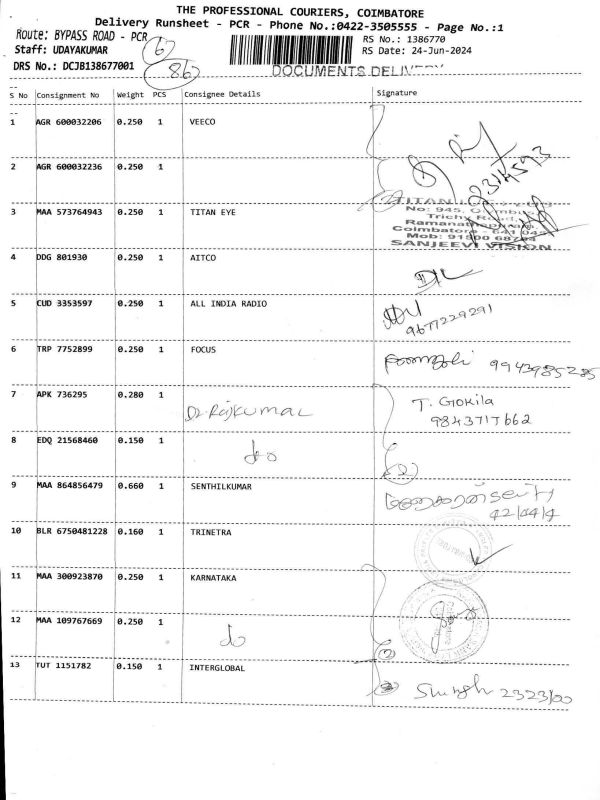 THE PROFESSIONAL COURIERS, COIMBATORE
Delivery Runsheet - PCR - Phone No.:0422-3505555 - Page No.:1
Route: BYPASS ROAD - PCR
RS No.: 1386770
Staff: UDAYAKUMAR
6
RS Date: 24-Jun-2024
DRS No.: DCJB138677001
86
DOCUMENTS DELIVERY
S No Consignment No Weight PCS Consignee Details Signature
1 AGR 600032206 0.250 1 VEECO
2 AGR 600032236 0.250 1
3 MAA 573764943 0.250 1 TITAN EYE
No: 945,
Trichy Road,
Ramanathapuram,
Coimbatore - 641 045
Mob: 91500
SANJEEVI VISION
4 DDG 801930 0.250 1 AITCO
5 CUD 3353597 0.250 1 ALL INDIA RADIO
9677229291
6 TRP 7752899 0.250 1 FOCUS
9943985285
7 APK 736295 0.280 1 Dr. Rajkumar T. Gokila
9843717662
8 EDQ 21568460 0.150 1 do
2
9 MAA 864856479 0.660 1 SENTHILKUMAR
42/44/4
10 BLR 6750481228 0.160 1 TRINETRA
11 MAA 300923870 0.250 1 KARNATAKA
12 MAA 109767669 0.250 1 do
2
13 TUT 1151782 0.150 1 INTERGLOBAL